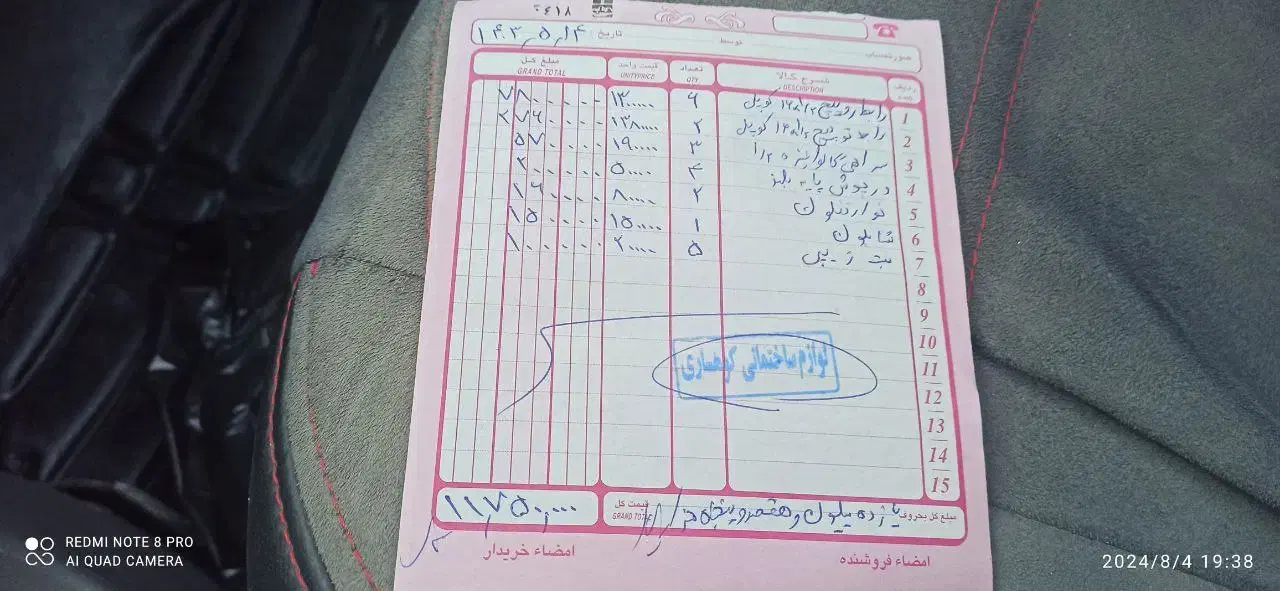 ۰۴۱۸
تاریخ: ۱۴۰۳,۵,۱۴
توسط
صورتحساب
ردیف
شرح کالا
DESCRIPTION
تعداد
QTY
قیمت واحد
UNITYPRICE
مبلغ کل
GRAND TOTAL
1 رابط روپیچ ۱/۲*۱۶ کوپل ۶ ۱۳۰۰۰۰۰ ۷۸۰۰۰۰۰
2 رابط توپیچ ۱/۲*۱۶ کوپل ۲ ۱۳۸۰۰۰۰ ۲۷۶۰۰۰۰
3 سراهی گالوانیزه ۳ ۱۹۰۰۰۰ ۵۷۰۰۰۰
4 درپوش پایه بلند ۴ ۵۰۰۰۰ ۲۰۰۰۰۰
5 نوار تفلون ۲ ۸۰۰۰۰ ۱۶۰۰۰۰
6 ۱ ۱۵۰۰۰۰ ۱۵۰۰۰۰
7 ۵ ۲۰۰۰۰ ۱۰۰۰۰۰
8
9
10
11
12
13
14
15
لوازم ساختمانی کوهساری
مبلغ کل بحروف: یازده میلیون و هفتصد و پنجاه هزار
قیمت کل
GRAND TOTAL
۱۱,۷۵۰,۰۰۰
امضاء فروشنده
امضاء خریدار
REDMI NOTE 8 PRO
AI QUAD CAMERA
2024/8/4 19:38